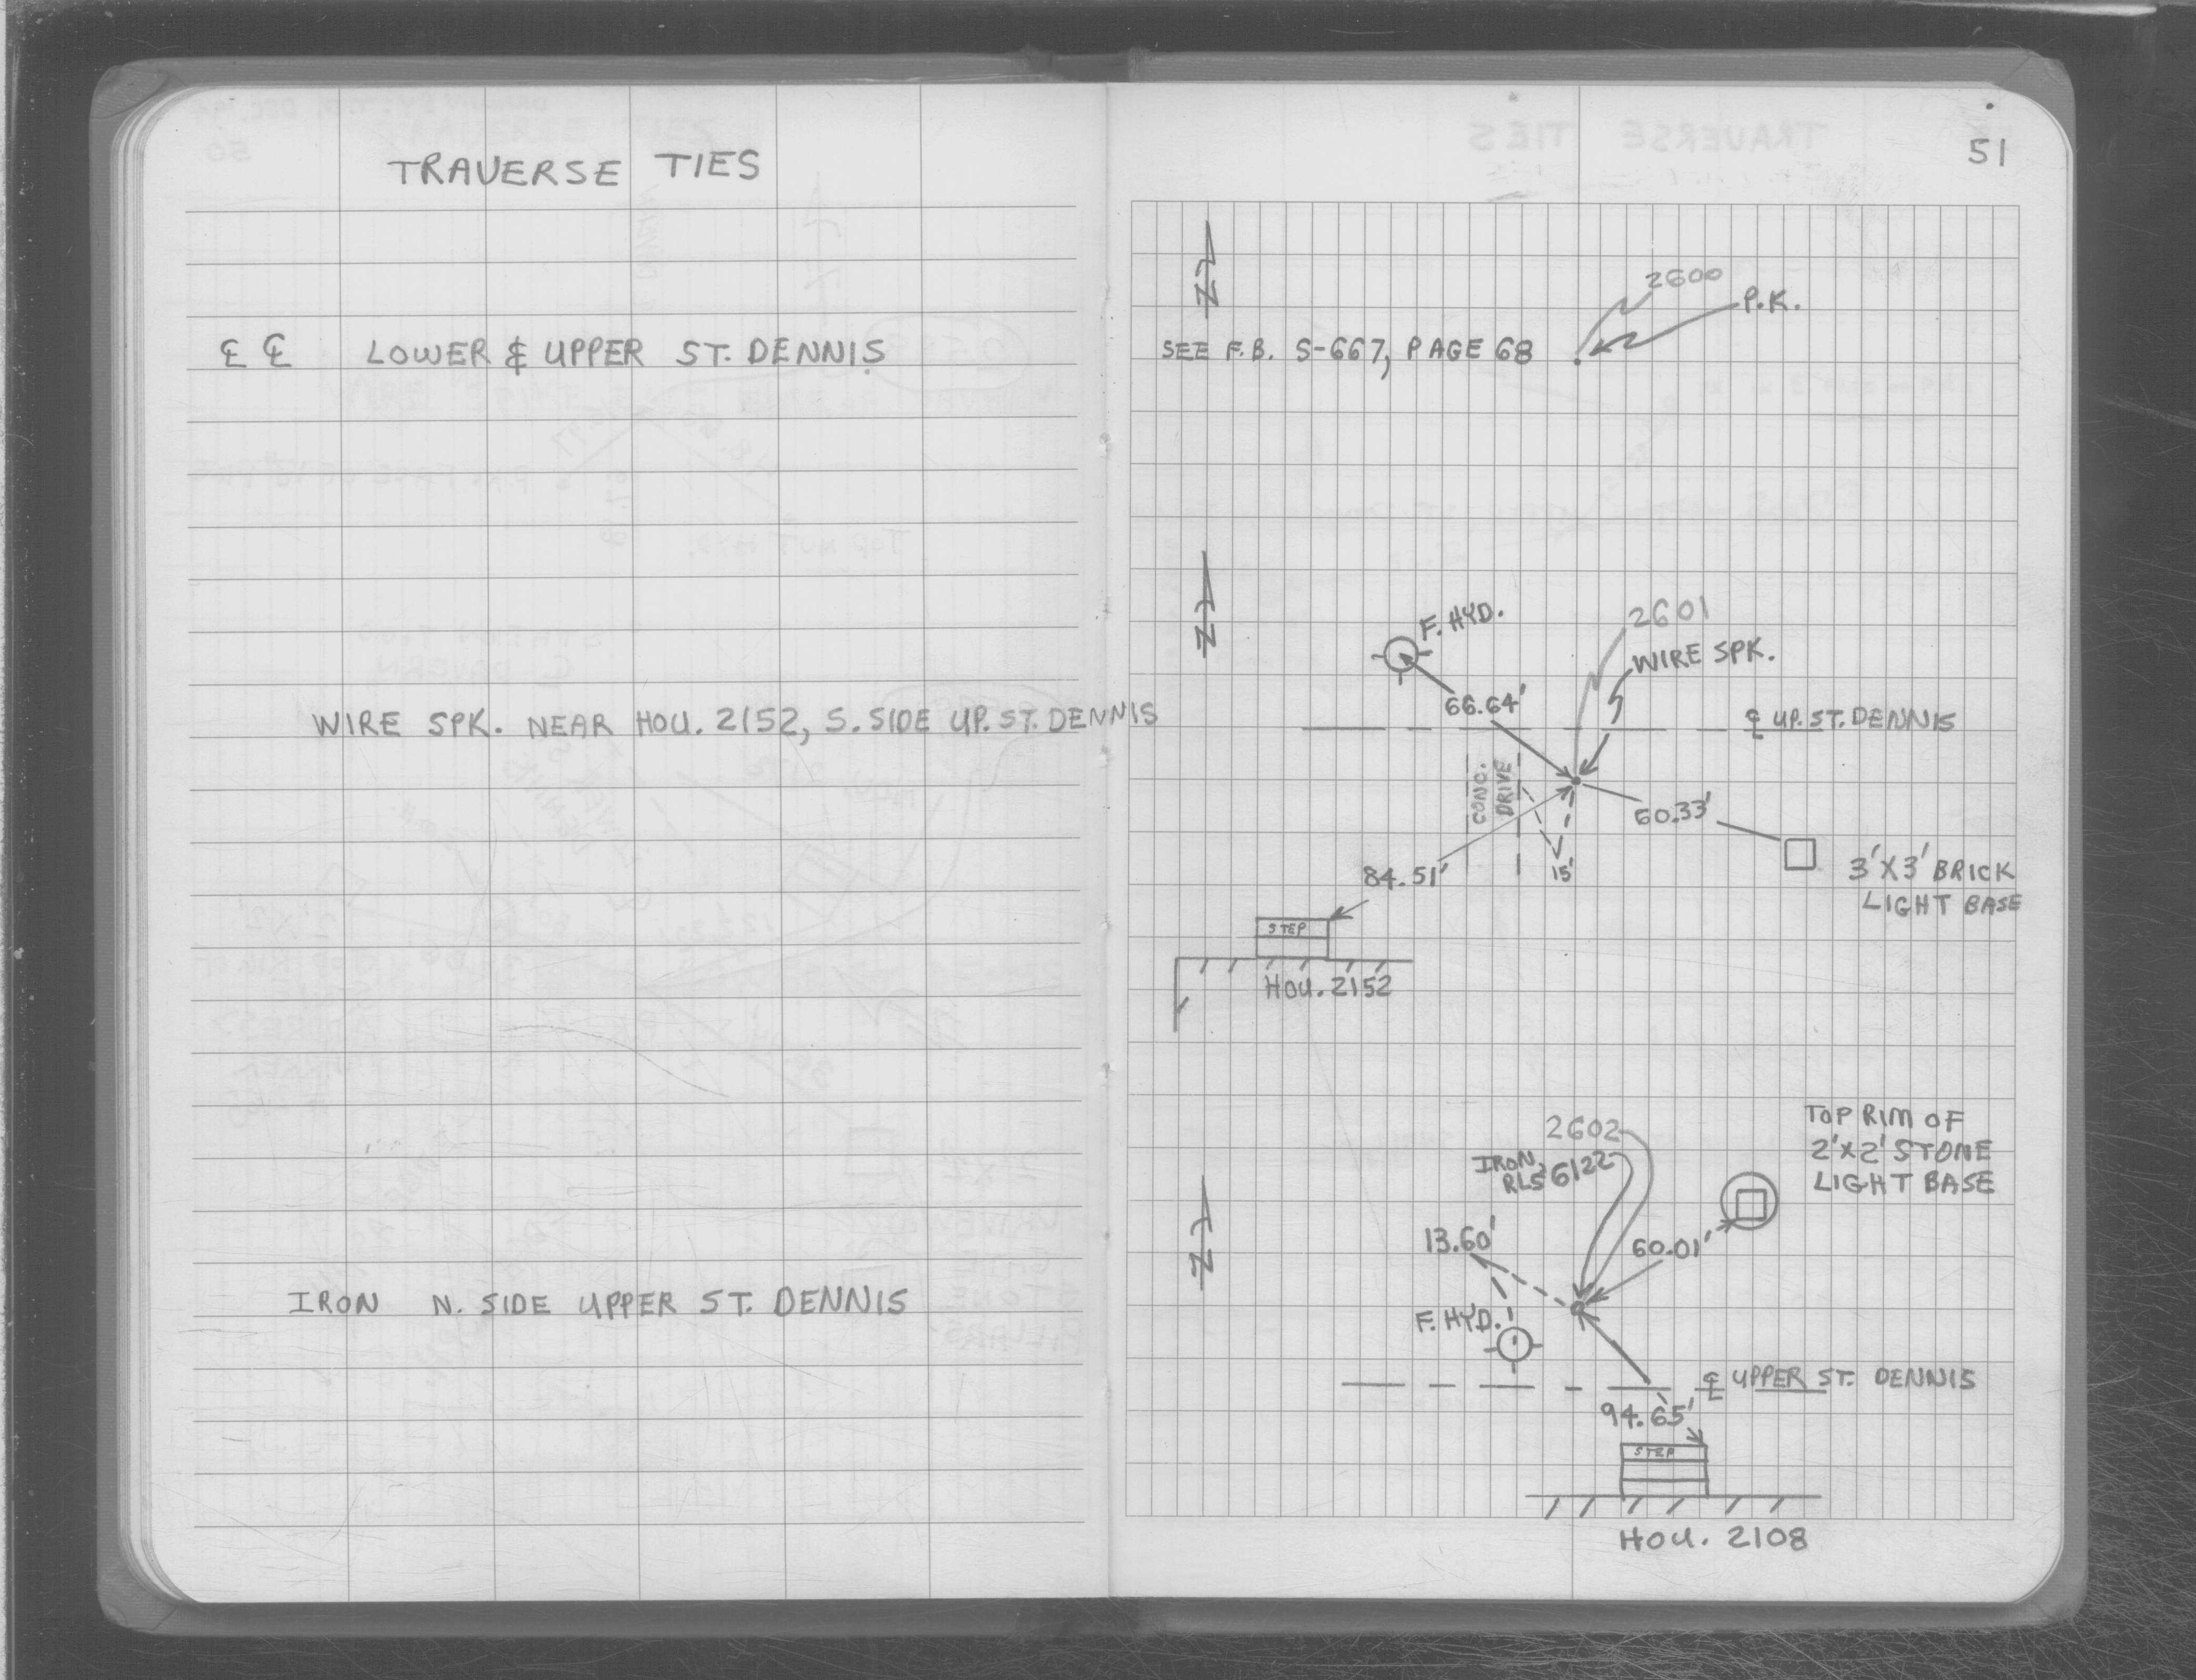 TRAVERSE TIES
℄ ℄ LOWER & UPPER ST. DENNIS
WIRE SPK. NEAR HOU. 2152, S. SIDE UP. ST. DENNIS
IRON N. SIDE UPPER ST. DENNIS
51
N
2600
P.K.
SEE F.B. S-667, PAGE 68
N
F. HYD.
2601
WIRE SPK.
66.64'
℄ UP. ST. DENNIS
CONC.
DRIVE
60.33'
84.51'
15'
3' X 3' BRICK
LIGHT BASE
STEP
HOU. 2152
N
2602
IRON
RLS 6122
TOP RIM OF
2' X 2' STONE
LIGHT BASE
13.60'
60.01'
F. HYD.
℄ UPPER ST. DENNIS
94.65'
STEP
HOU. 2108